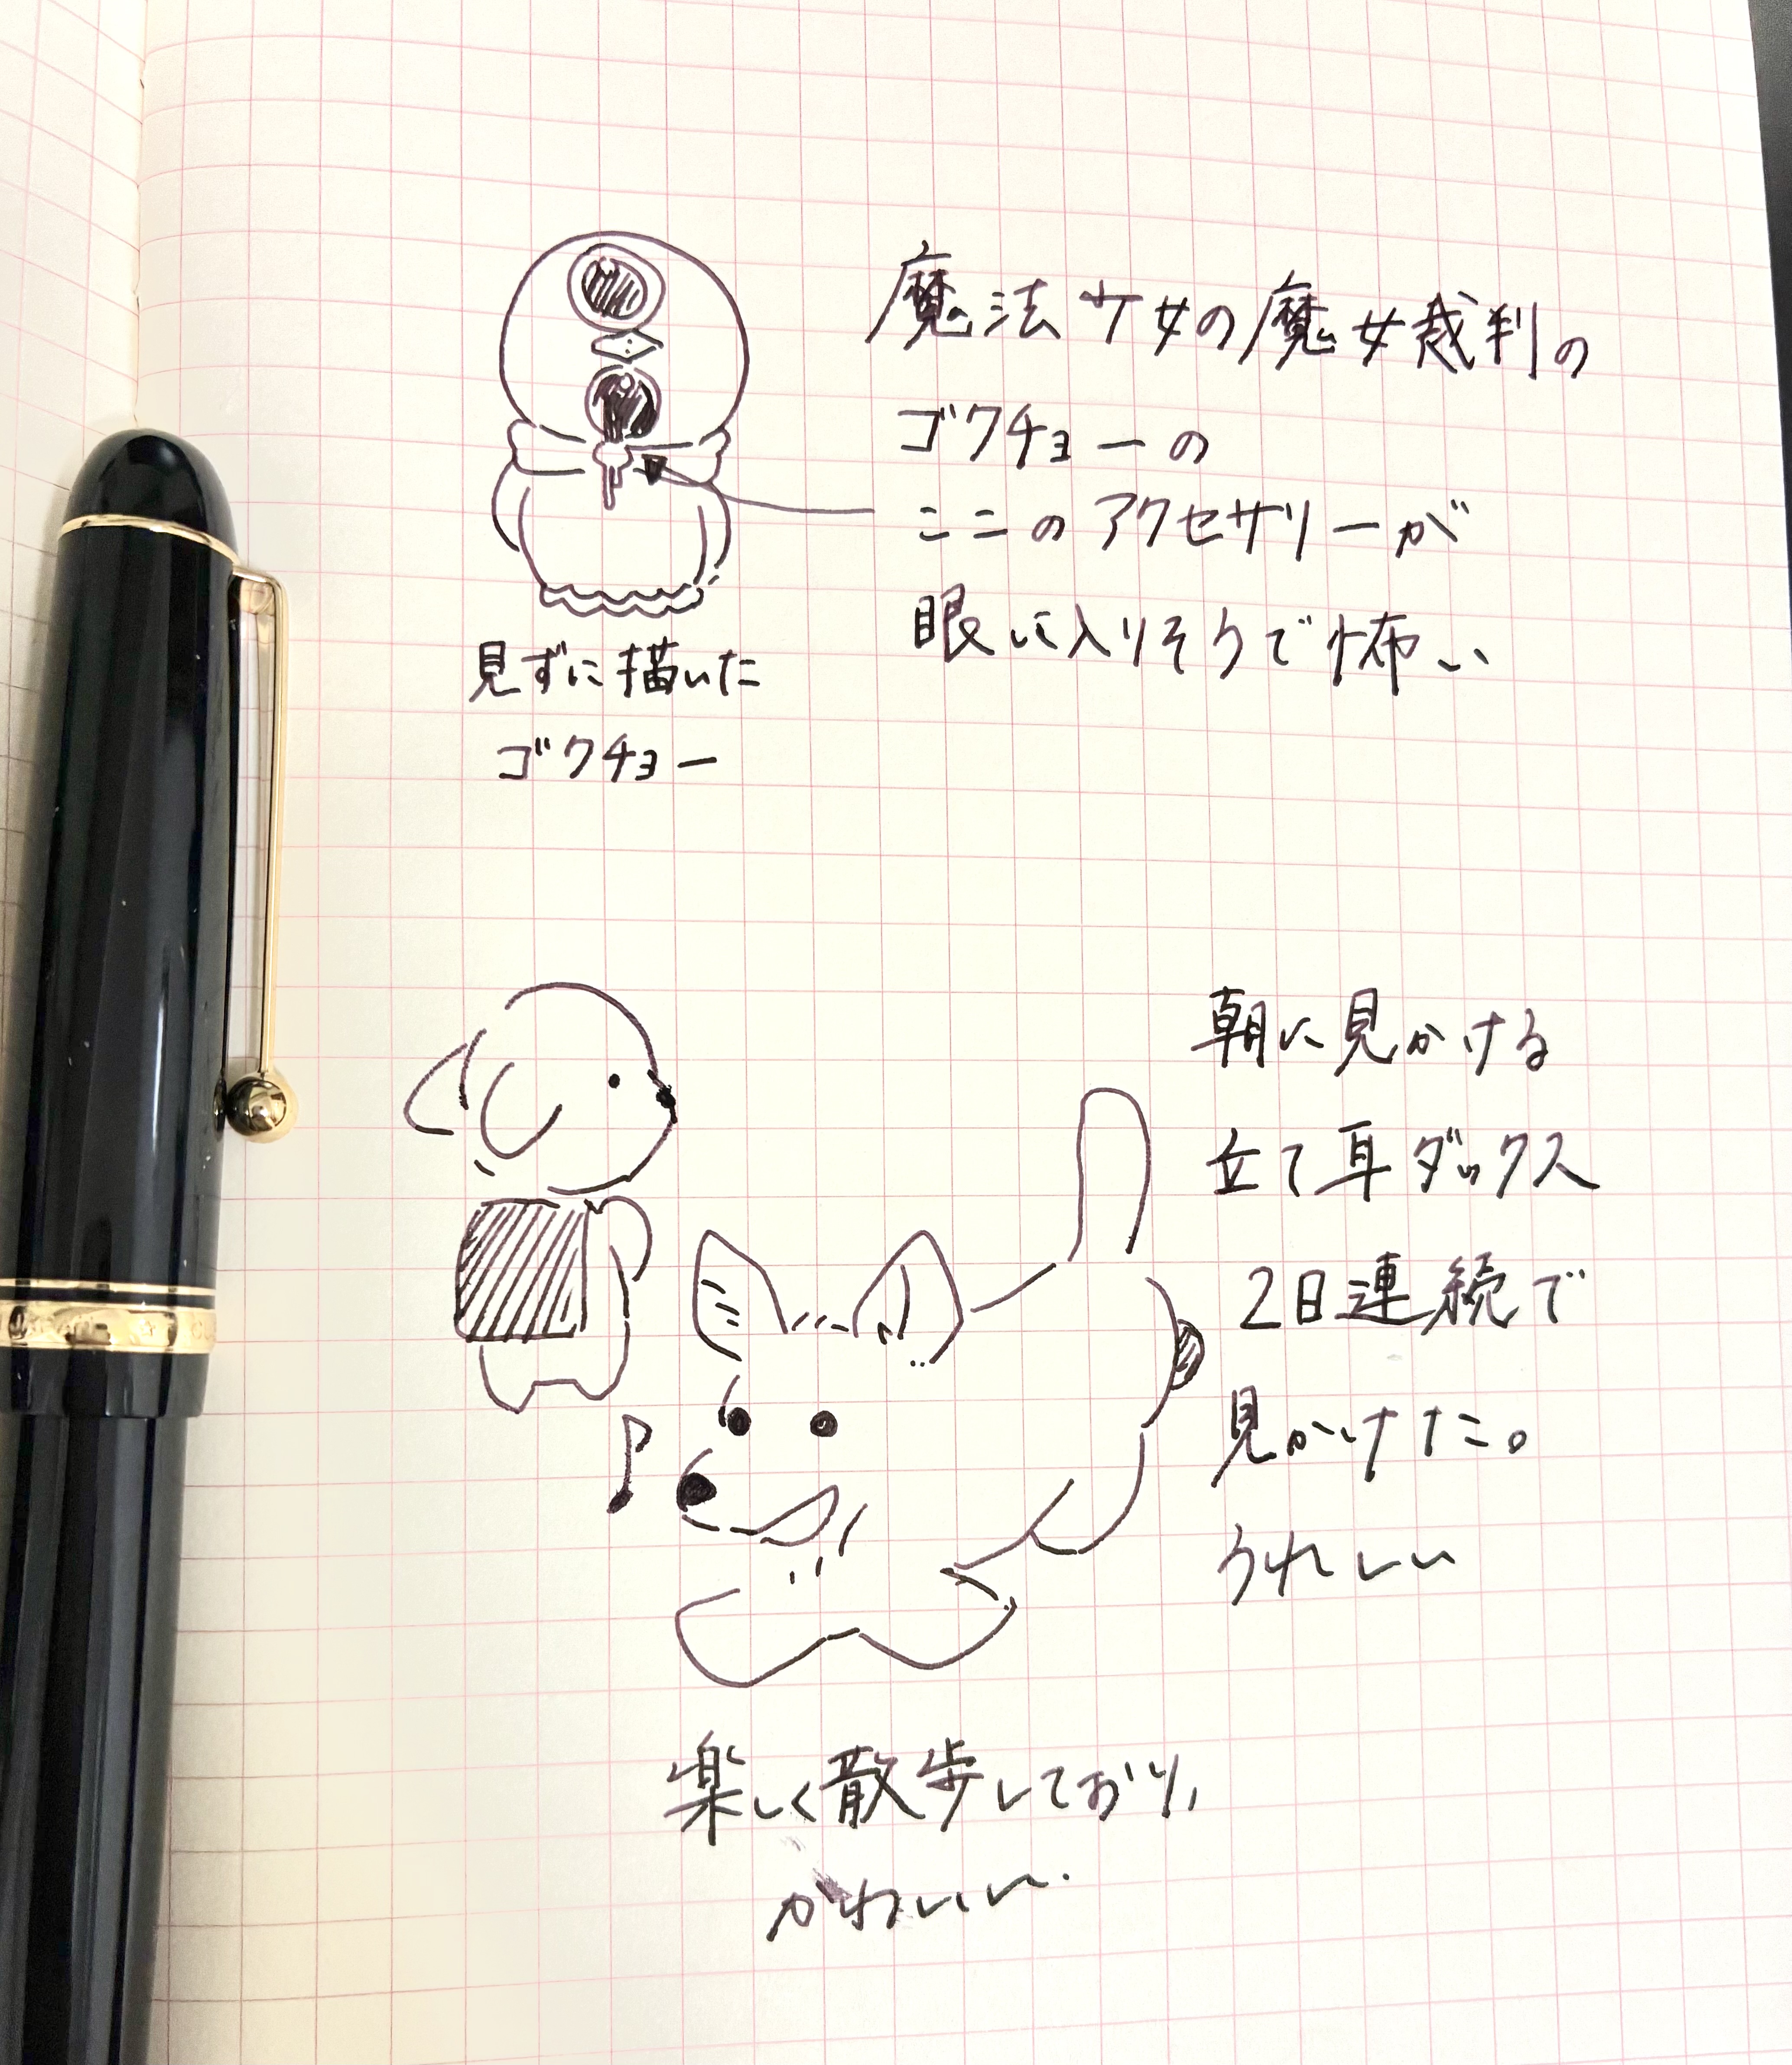 魔法少女の魔女裁判の
ゴクチョーの
ここのアクセサリーが
眼に入りそうで怖い
見ずに描いた
ゴクチョー
朝に見かける
立て耳ダックス
2日連続で
見かけた。
うれしい
楽しく散歩しており、
かわいい.